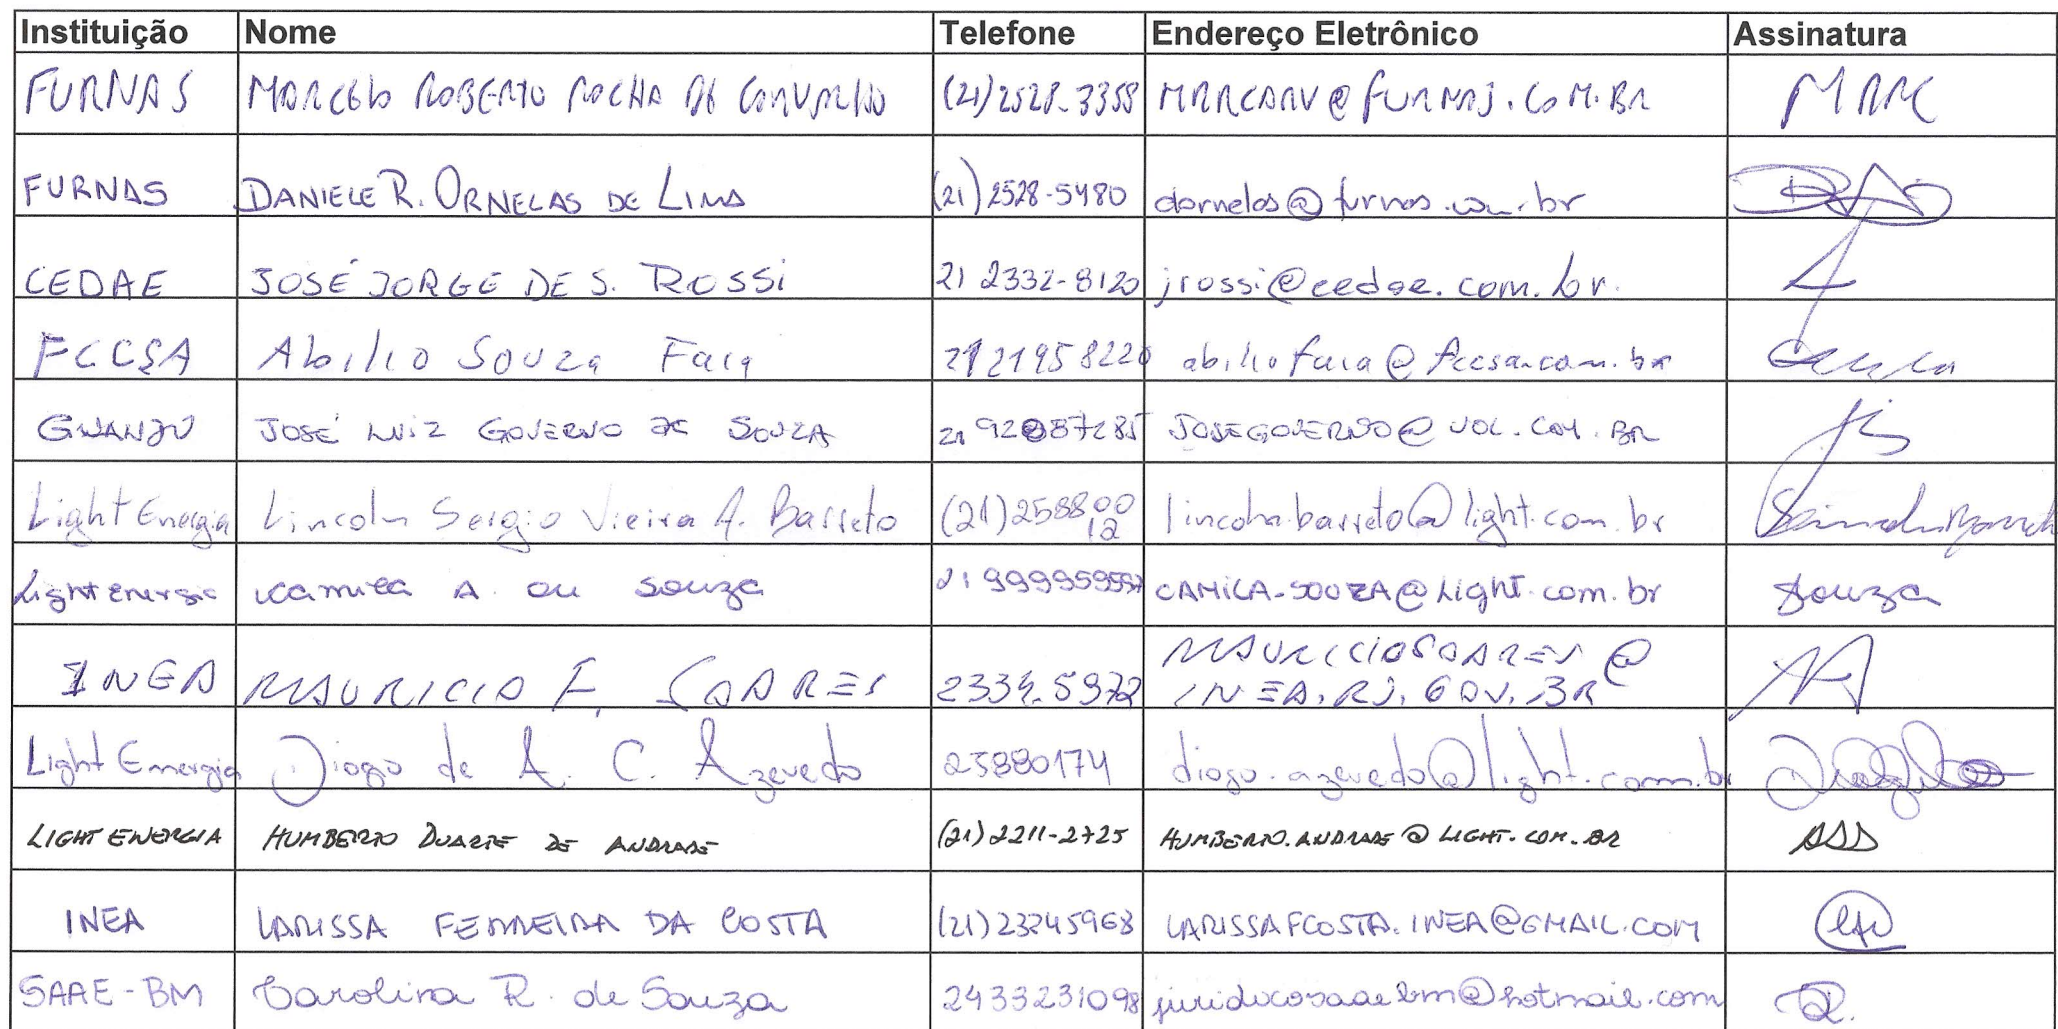 Instituição Nome Telefone Endereço Eletrônico Assinatura
FURNAS MARCELO ROBERTO ROCHA DE CARVALHO (21)2528-3358 MRRCARV@FURNAS.COM.BR MRRC
FURNAS DANIELE R. ORNELAS DE LIMA (21)2528-5480 dornelas@furnas.com.br
CEDAE JOSÉ JORGE DE S. ROSSI 21 2332-8120 jrossi@cedae.com.br.
FCCSA Abilio Souza Faia 21 21958220 abiliofaia@fccsa.com.br
JOSÉ LUIZ GOVERNO DE SOUZA 21 JOSEGOVERNO@UOL.COM.BR
Light Energia Lincoln Sergio Vieira A. Barreto (21)258800
12 lincoln.barreto@light.com.br
Light energia Camila A. de Souza CAMILA.SOUZA@light.com.br Souza
INEA MAURICIO F. SOARES 2334-5972 MAURICIOSOARES@
INEA.RJ.GOV.BR
Light Energia Diogo de A. C. Azevedo 25880174 diogo.azevedo@light.com.br
LIGHT ENERGIA HUMBERTO DUARTE DE ANDRADE (21)2211-2725 HUMBERTO.ANDRADE@LIGHT.COM.BR
INEA LARISSA FERREIRA DA COSTA (21)23345968 LARISSAFCOSTA.INEA@GMAIL.COM
SAAE-BM Carolina R. de Souza 2433231098 juridicosaaebm@hotmail.com